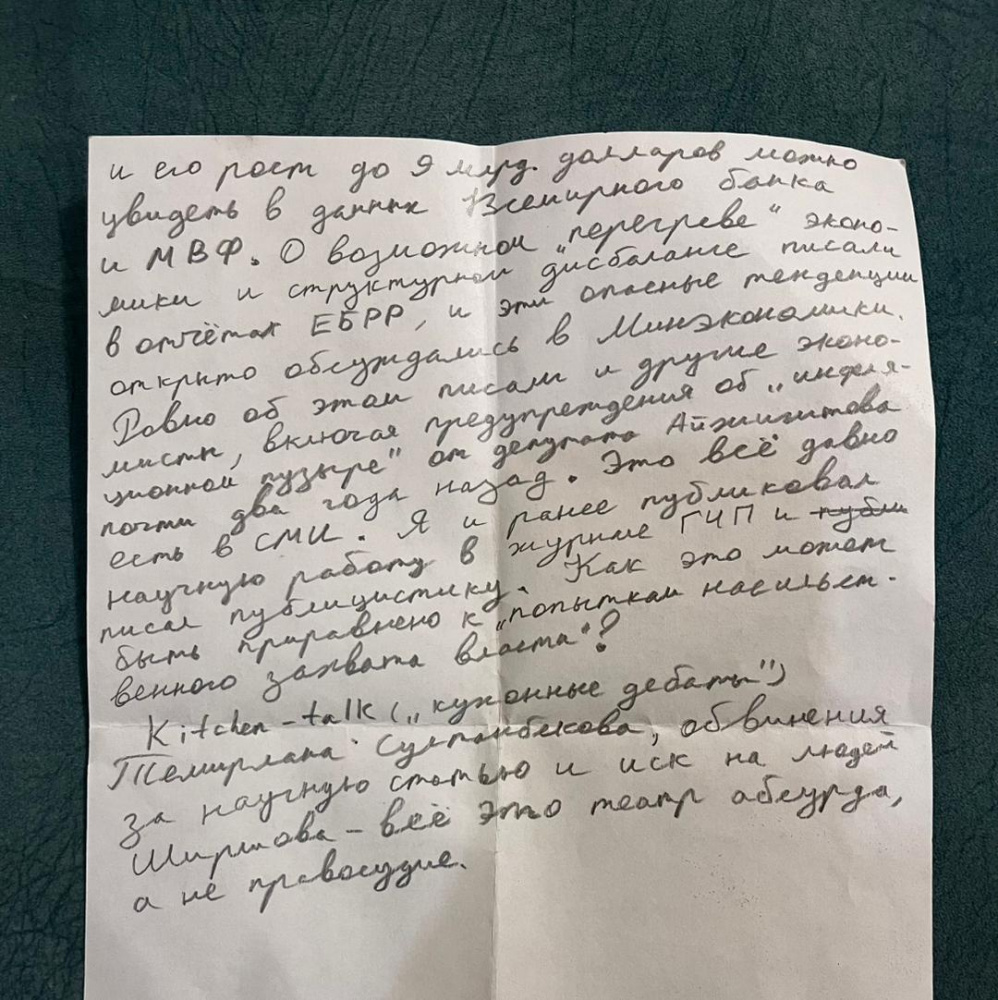 и его рост до 9 млрд. долларов можно
увидеть в данных Всемирного банка
и МВФ. О возможном „перегреве" эконо-
мики и структурном дисбалансе писали
в отчётах ЕБРР, и эти опасные тенденции
открыто обсуждались в Минэкономики.
Равно об этом писали и другие эконо-
мисты, включая предупреждения об „инфля-
ционном пузыре" от депутата Айжигитова
почти два года назад. Это всё давно
есть в СМИ. Я и ранее публиковал
научную работу в журнале ГЧП и публи
писал публицистику. Как это может
быть приравнено к „попыткам насильст-
венного захвата власти"?
Kitchen-talk („кухонные дебаты")
Темирлана Султанбекова, обвинения
за научную статью и иск на людей
Ширшова – всё это театр абсурда,
а не правосудие.